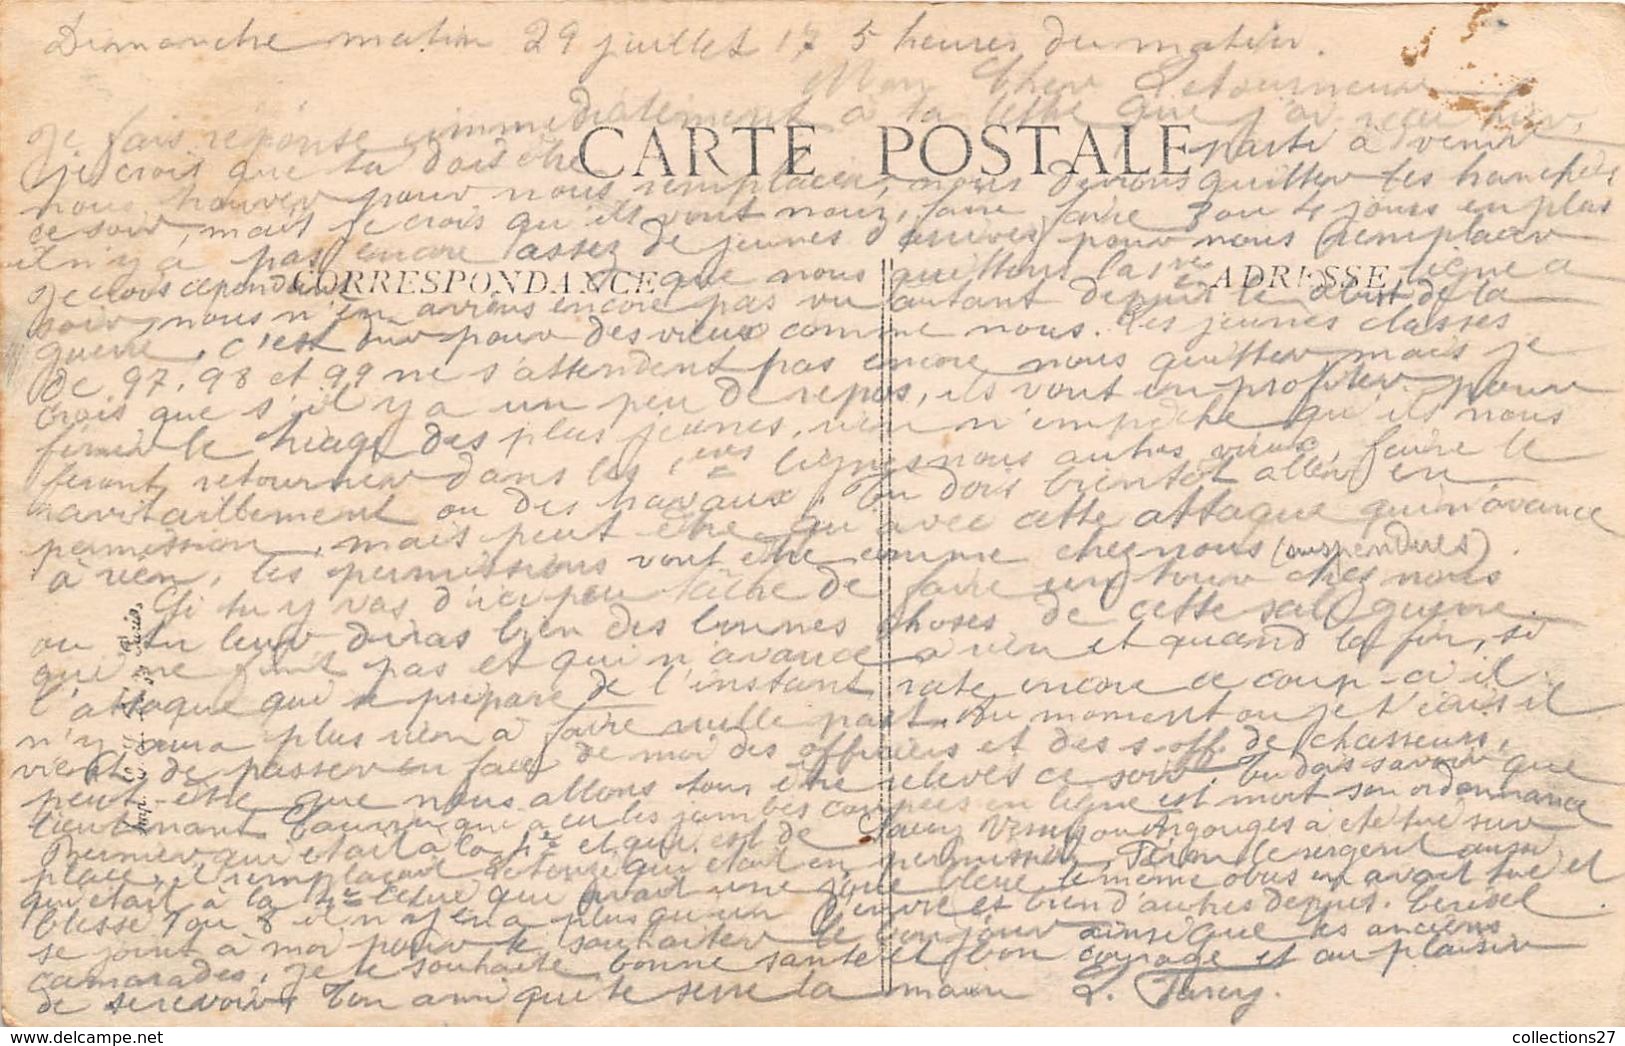 Dimanche matin 29 juillet 17 5 heures du matin.
Mon cher Letourneur
je fais réponse immédiatement à ta lettre que j'ai reçu hier,
CARTE POSTALE
je crois que tu dois être parti à venir
nous trouver pour nous remplacer, nous devions quitter les tranchées
ce soir, mais je crois qu'ils vont nous faire faire 3 ou 4 jours en plus
il n'y a pas encore assez de jeunes d'arrivés pour nous remplacer
CORRESPONDANCE
ADRESSE
je crois cependant que nous quittons la 1re ligne ce
soir, nous n'en avions encore pas vu autant depuis le début de la
guerre, c'est dur pour des vieux comme nous. Les jeunes classes
de 97, 98 et 99 ne s'attendent pas encore nous quitter mais je
crois que s'il y a un peu de repos, ils vont en profiter pour
finir le triage des plus jeunes, rien n'empêche qu'ils nous
feront retourner dans les 1eres lignes nous autres vieux faire le
ravitaillement ou des travaux. Tu dois bientôt aller en
permission, mais peut être qu'avec cette attaque qui n'avance
à rien, les permissions vont être comme chez nous (suspendues).
Si tu y vas d'ici peu tâche de faire un tour chez nous
ou tu leur diras bien des bonnes choses de cette sale guerre
qui ne finit pas et qui n'avance à rien et quand la fin, si
l'attaque qui se prépare de l'instant rate encore ce coup-ci il
n'y aura plus rien à faire nulle part. Au moment ou je t'écris il
vient de passer en face de moi des officiers et des s-off. de chasseurs,
peut-être que nous allons tous être relevés ce soir. Tu dois savoir que
lieutenant qui a eu les jambes coupées en ligne est mort son ordonnance
Bernier qui était à la 4e et qui est de ou Argouges a été tué sur
place, il remplaçait qui était en permission, le sergent aussi
qui était à la 4e celui qui avait une joue bleue le même obus en avait tué et
blessé 7 ou 8 il n'y en a plus qu'un de vivre et bien d'autres depuis.
se joint à moi pour te souhaiter le bonjour ainsi que les anciens
camarades, je te souhaite bonne santé et bon courage et au plaisir
de se revoir, ton ami qui te serre la main L.
collections27